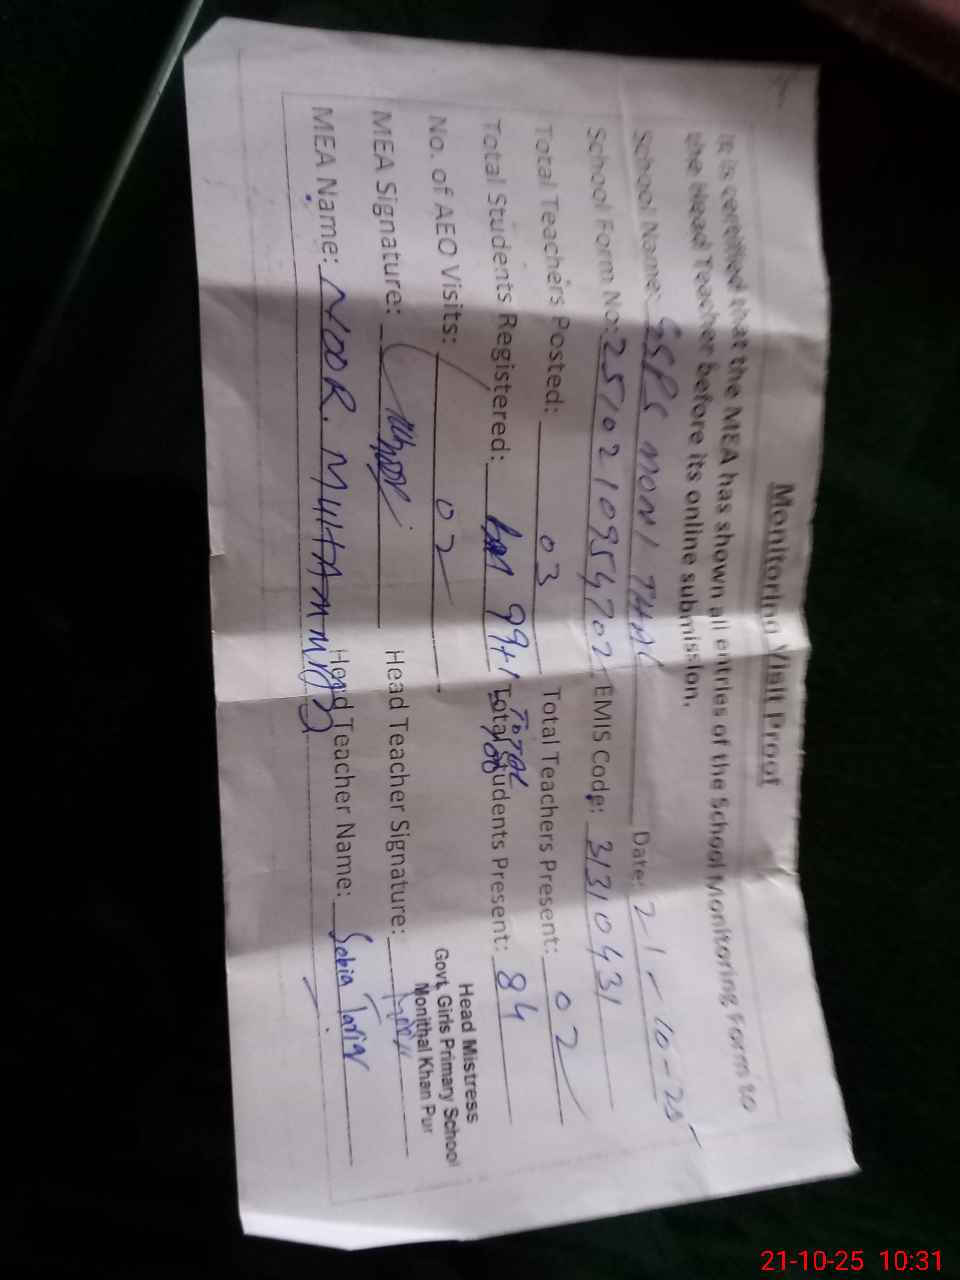 Monitoring Visit Proof
It is certified that the MEA has shown all entries of the School Monitoring Form to
the Head Teacher before its online submission.
School Name: GGPS MONI THAL Date: 21-10-25
School Form No: 2510210954702 EMIS Code: 31310431
Total Teachers Posted: 03 Total Teachers Present: 02
Total Students Registered: 99+1 Total Students Present: 84
TOTAL
100
No. of AEO Visits: 02
MEA Signature: Head Teacher Signature:
MEA Name: NOOR. MUHAMMAD Head Teacher Name: Sobia Tariq
Head Mistress
Govt, Girls Primary School
Monithal Khan Pur
21-10-25 10:31